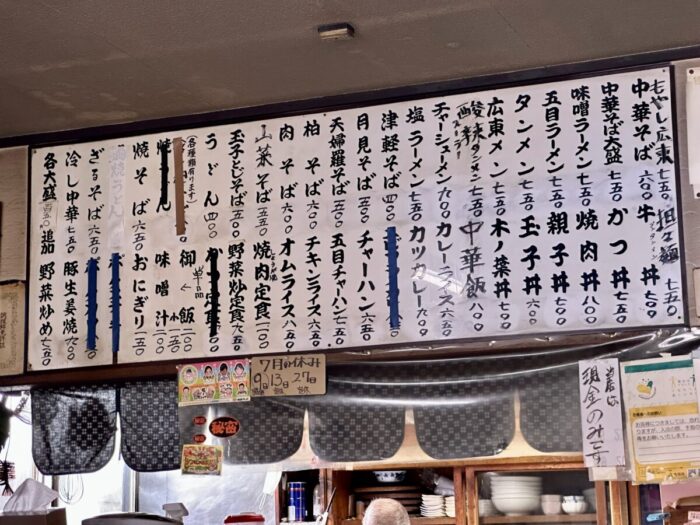 もやし広東 七五〇 担々麺 七五〇
中華そば 六〇〇 牛丼 七五〇
中華そば大盛 七五〇 かつ丼 七五〇
味噌ラーメン 七五〇 焼肉丼 八〇〇
五目ラーメン 七五〇 親子丼 七五〇
タンメン 七五〇 玉子丼 六〇〇
広東メン 七五〇 木ノ葉丼 七五〇
酸辣タンメン 七五〇 中華飯 八〇〇
チャーシューメン 九〇〇 カレーライス 六五〇
塩ラーメン 七五〇 カツカレー 九〇〇
津軽そば 四〇〇
月見そば 五〇〇 チャーハン 六五〇
天婦羅そば 五〇〇 五目チャーハン 七五〇
柏そば 六〇〇 チキンライス 六五〇
肉そば 六〇〇 オムライス 八五〇
山菜そば 五五〇 焼肉定食 一一〇〇
玉子とじそば 五五〇 野菜炒定食 九五〇
うどん 四〇〇
(各種類有ります)
単品
御飯 二〇〇
味噌汁 一〇〇
焼そば 六五〇 おにぎり 一五〇
ざるそば 六五〇
冷し中華 七五〇 豚生姜焼 七〇〇
各大盛 一五〇追加 野菜炒め 七五〇
7月の休み
9日 13日 27日
秘密
当店は
現金のみです